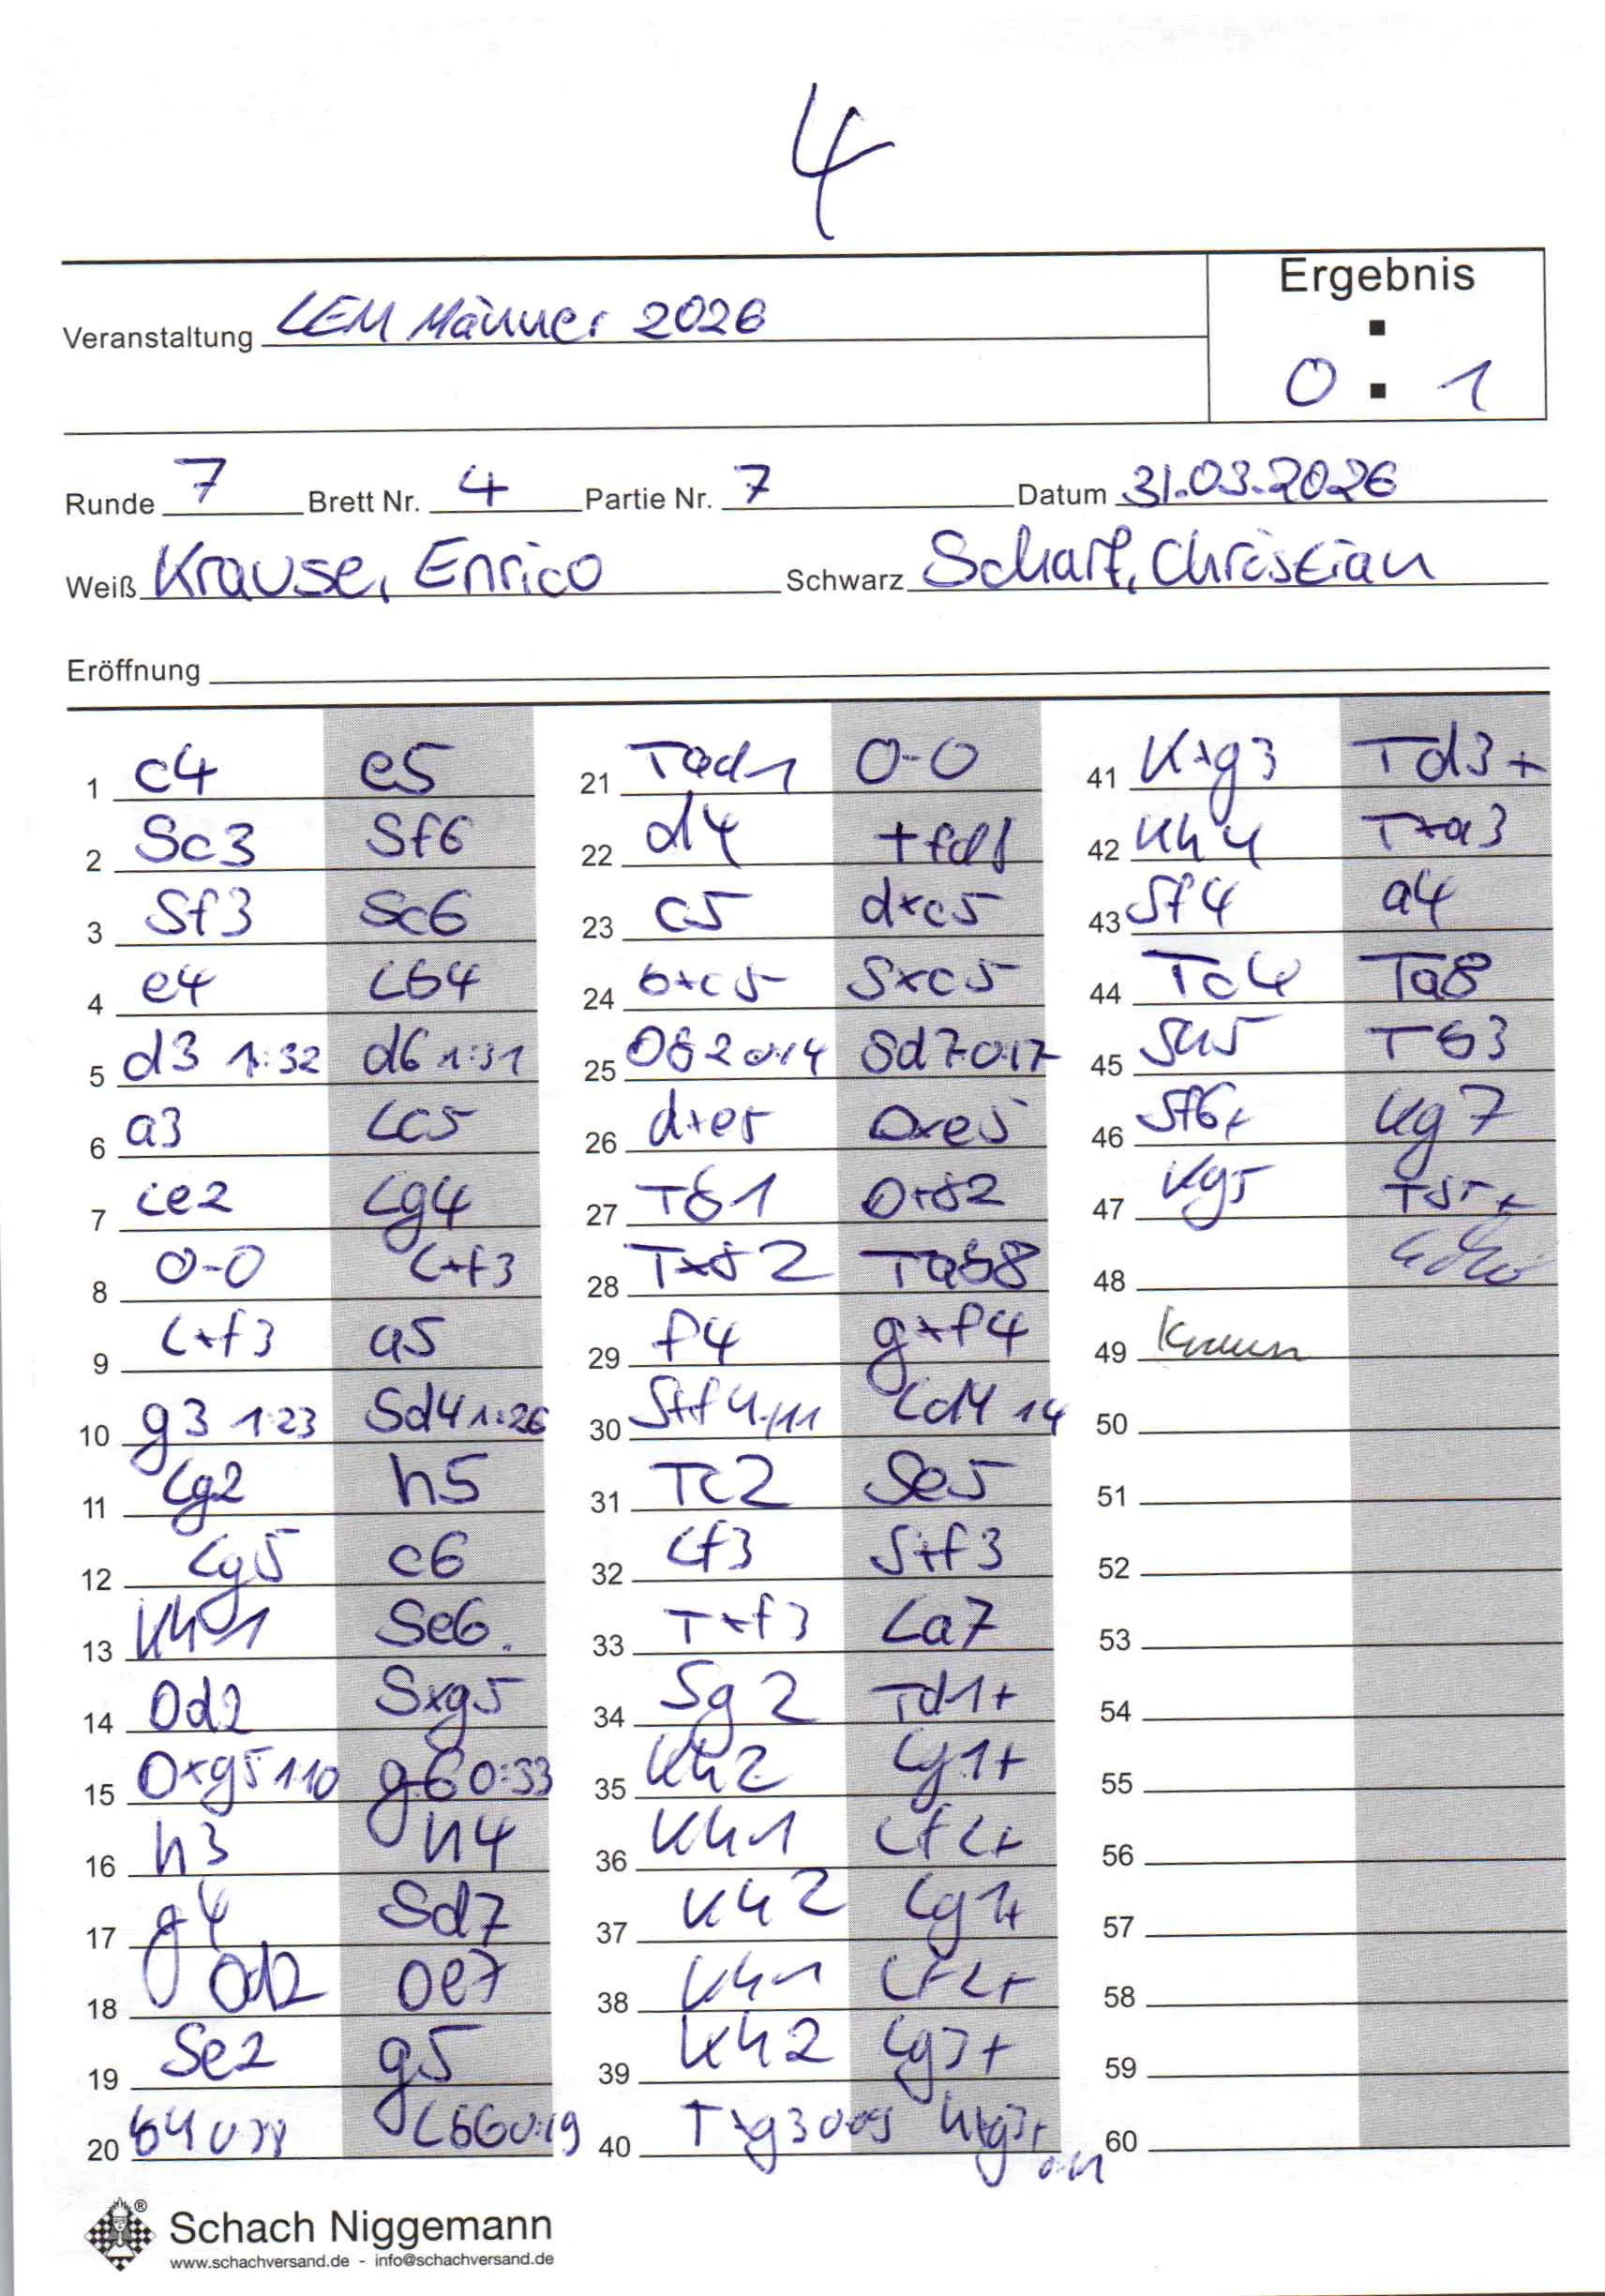 4
Ergebnis
:
Veranstaltung LEM Männer 2026
0 : 1
Runde 7 Brett Nr. 4 Partie Nr. 7 Datum 31.03.2026
Weiß Krause, Enrico Schwarz Scharf, Christian
Eröffnung
1 c4 e5
2 Sc3 Sf6
3 Sf3 Sc6
4 e4 Lb4
5 d3 1:32 d6 1:31
6 a3 Lc5
7 Le2 Lg4
8 0-0 Lxf3
9 Lxf3 a5
10 g3 1:23 Sd4 1:26
11 Lg2 h5
12 Lg5 c6
13 Kh1 Se6.
14 Dd2 Sxg5
15 Dxg5 1:10 g6 0:53
16 h3 h4
17 g4 Sd7
18 Dd2 De7
19 Se2 g5
20 b4 Lb6 0:19
21 Tad1 0-0
22 d4 Tfd8
23 c5 dxc5
24 bxc5 Sxc5
25 Db2 0:14 Sd7 0:17
26 dxe5 Dxe5
27 Tb1 Dxb2
28 Txb2 Tab8
29 f4 gxf4
30 Sxf4 11 Ld4 14
31 Tc2 Se5
32 Lf3 Sxf3
33 Txf3 La7
34 Sg2 Td1+
35 Kh2 Lg1+
36 Kh1 Lf2+
37 Kh2 Lg1+
38 Kh1 Lf2+
39 Kh2 Lg3+
40 Txg3 0:09 hxg3+
41 Kxg3 Td3+
42 Kh4 Txa3
43 Sf4 a4
44 Tc4 Ta8
45 Sh5 Tb3
46 Sf6+ Kg7
47 Kg5 Tb5+
48
49
50
51
52
53
54
55
56
57
58
59
60
®
Schach Niggemann
www.schachversand.de - info@schachversand.de